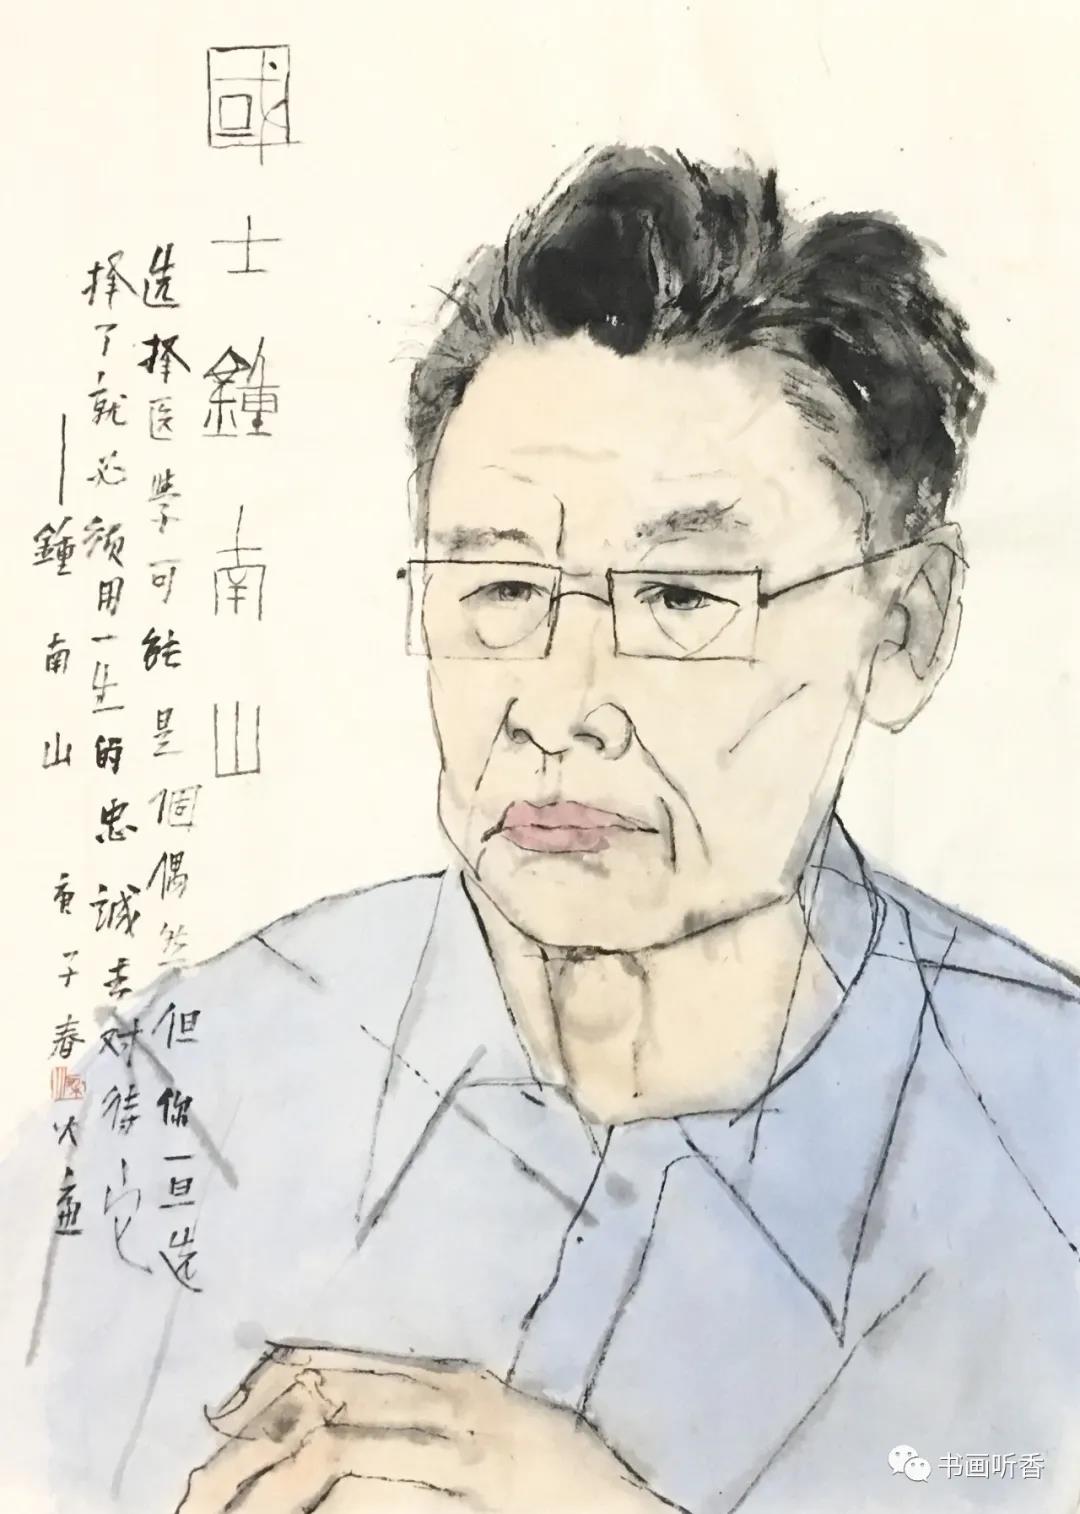 國士鐘南山
选择医學可能是個偶然但你一旦选
择了就必须用一生的忠誠去对待它
——鐘南山 庚子春
书画听香